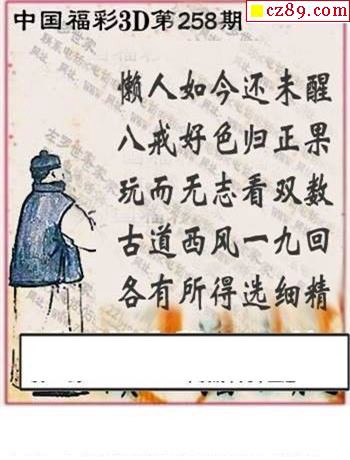 cz89.com
中国福彩3D第258期
懒人如今还未醒
八戒好色归正果
玩而无志看双数
古道西风一九回
各有所得选细精